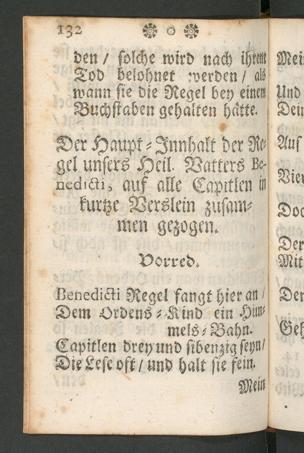 132
den / solche wird nach ihrem
Tod belohnet werden / als
wann sie die Regel bey einem
Buchstaben gehalten hätte.
Der Haupt-Innhalt der Re-
gel unsers Heil. Vatters Be-
nedicti, auf alle Capitlen in
kurtze Verslein zusam-
men gezogen.
Vorred.
Benedicti Regel fangt hier an /
Dem Ordens-Kind ein Him-
mels-Bahn.
Capitlen drey und sibenzig seyn /
Die Lese oft / und halt sie fein.
Mein
Mei
Und
Auf
Vie
Doc
Der
Mit
Der
Geh